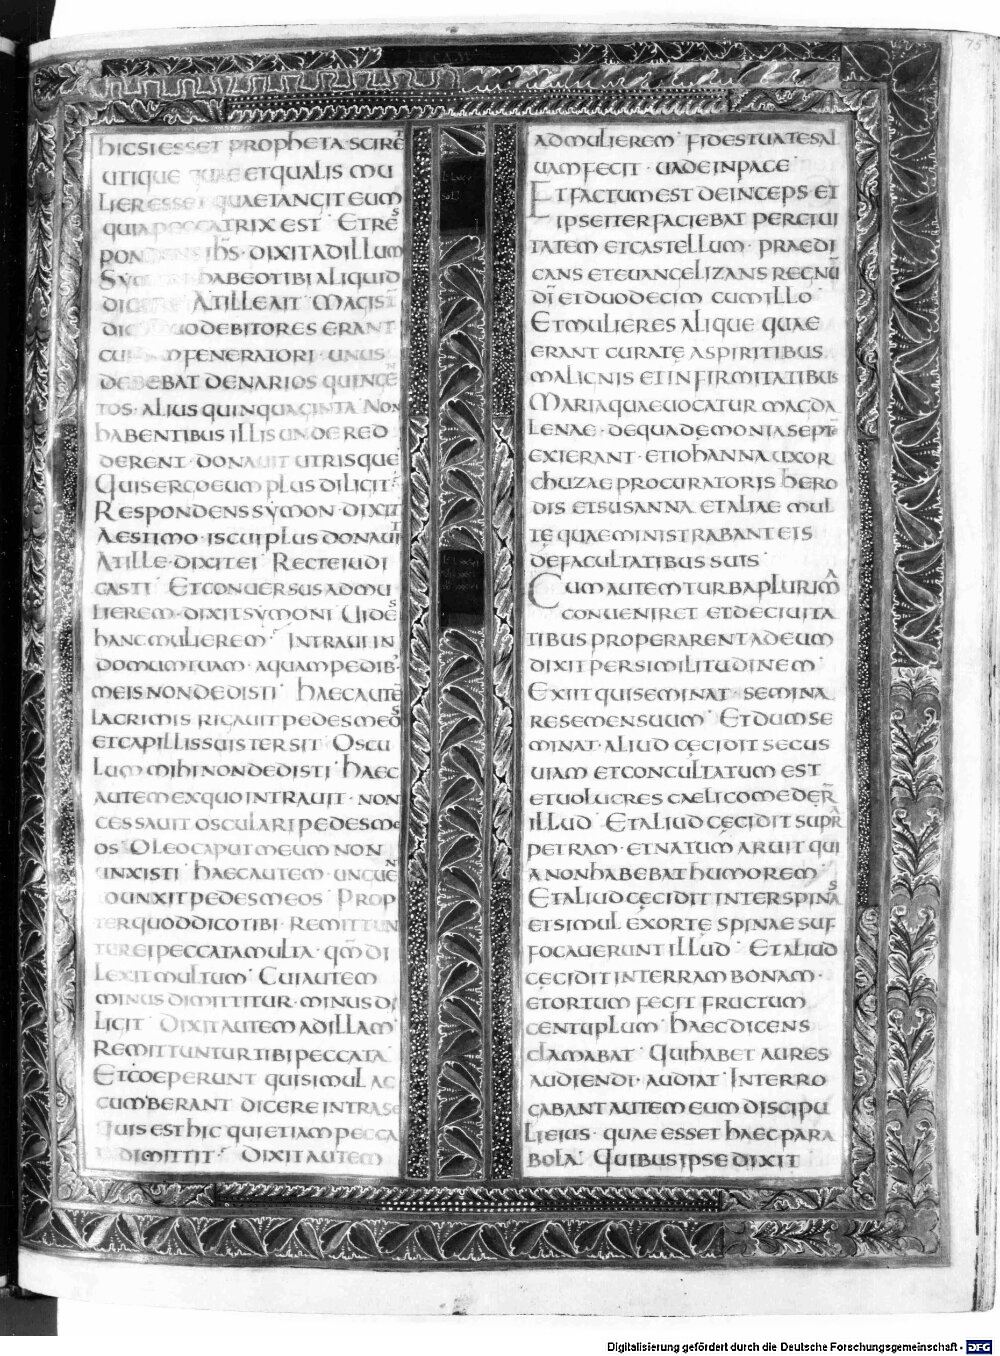 75
HICSIESSET PROPHETA·SCIRET
UTIQUE QUAE ETQUALIS MU
LIERESSET QUAETANGITEUM
QUIAPECCATRIX EST· ETRES
PONDENS IHS·DIXITADILLUM
SYMON HABEOTIBIALIQUID
DICERE ATILLEAIT MAGIST
DIC DUODEBITORES ERANT
CUI NFENERATORI·UNUS
DEBEBAT DENARIOS QUINGEN
TOS·ALIUS QUINQUAGINTA NON
HABENTIBUS ILLIS UNDE RED
DERENT·DONAUIT UTRISQUE
QUISERGOEUM PLUS DILIGIT·
RESPONDENS SYMON DIXIT
AESTIMO·ISCUIPLUS DONAUIT
ATILLE·DIXITEI RECTEIUDI
CASTI ETCONUERSUS ADMU
LIEREM·DIXITSYMONI UIDES
HANC MULIEREM· INTRAUI IN
DOMUMTUAM·AQUAMPEDIB·
MEISNONDEDISTI HAECAUTĒ
LACRIMIS RIGAUIT PEDES MEOS
ETCAPILLISSUISTERSIT OSCU
LUM MIHINONDEDISTI· HAEC
AUTEMEXQUOINTRAUIT·NON
CESSAUIT OSCULARI PEDES ME
OS OLEOCAPUTMEUM NON
UNXISTI HAECAUTEM·UNGUEN
TOUNXITPEDESMEOS PROP
TERQUODDICOTIBI·REMITTUN
TUREIPECCATAMULTA·QM̄DI
LEXITMULTUM CUIAUTEM
MINUS DIMITTITUR·MINUS DI
LIGIT DIXITAUTEMADILLAM
REMITTUNTURTIBIPECCATA
ETCOEPERUNT QUISIMULAC
CUMBERANT DICERE INTRASE
QUIS EST HIC QUIETIAMPECCA
TADIMITTIT· DIXITAUTEM
ADMULIEREM· FIDESTUATESAL
UAMFECIT·UADEINPACE
ETFACTUMEST DEINCEPS·ET
IPSEITERFACIEBAT PERCIUI
TATEM ETCASTELLUM·PRAEDI
CANS ETEUANGELIZANS REGNŪ
DĪ ETDUODECIM CUMILLO
ETMULIERES ALIQUE QUAE
ERANT CURATĘ ASPIRITIBUS
MALIGNIS ETINFIRMITATIBUS
MARIAQUAEUOCATUR MAGDA
LENAE·DEQUADEMONIASEPTĒ
EXIERANT·ETIOHANNA UXOR
CHUZAE PROCURATORIS HERO
DIS ETSUSANNA ETALIAE MUL
TĘ QUAEMINISTRABANTEIS
DEFACULTATIBUS SUIS
CUMAUTEMTURBAPLURIMA
CONUENIRET ETDECIUITA
TIBUS PROPERARENTADEUM
DIXITPERSIMILITUDINEM
EXIITQUISEMINAT·SEMINA
RESEMENSUUM ETDUMSE
MINAT·ALIUD CĘCIDIT SECUS
UIAM ETCONCULTATUM EST
ETUOLUCRES CAELICOMEDER̄
ILLUD ETALIUDCĘCIDIT SUPRA
PETRAM·ETNATUM ARUIT QUI
A NONHABEBATHUMOREM
ETALIUDCĘCIDIT INTERSPINAS
ETSIMUL EXORTĘ SPINAE SUF
FOCAUERUNTILLUD ETALIUD
CĘCIDIT INTERRAM BONAM·
ETORTUM FECIT FRUCTUM
CENTUPLUM HAECDICENS
CLAMABAT QUIHABET AURES
AUDIENDI·AUDIAT INTERRO
GABANTAUTEMEUM DISCIPU
LIEIUS·QUAE ESSET HAECPARA
BOLA QUIBUSIPSEDIXIT
Digitalisierung gefördert durch die Deutsche Forschungsgemeinschaft - DFG